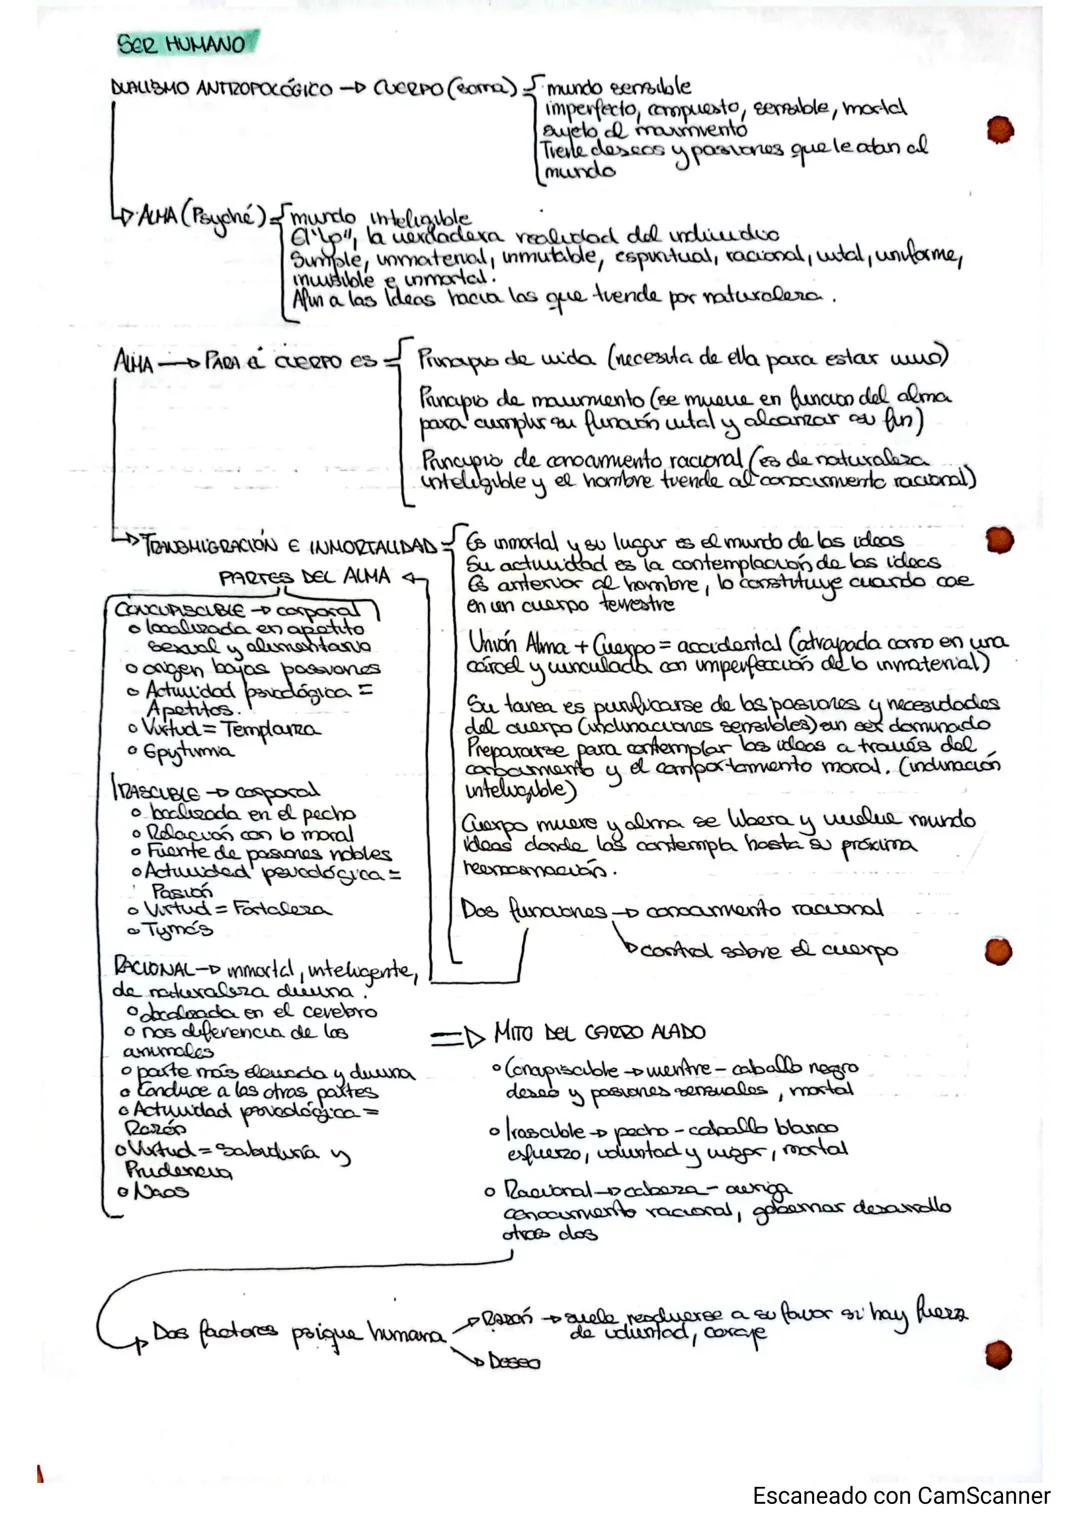 SER HUMANO
DUALISMO ANTROPOLÓGICO → CUERPO (soma)
mundo sensible
imperfecto, compuesto, sensible, mortal
sujeto al movimiento
Tiene deseos y pasiones que le atan al
mundo
ALMA (Psyché)
mundo inteligible
El "yo", la verdadera realidad del individuo
Simple, inmaterial, inmutable, espiritual, racional, vital, uniforme,
invisible e inmortal.
Afín a las Ideas hacia las que tiende por naturaleza.
ALMA → PARA el CUERPO ES
Principio de vida (necesita de ella para estar vivo)
Principio de movimiento (se mueve en función del alma
para cumplir su función vital y alcanzar su fin)
Principio de conocimiento racional (es de naturaleza
inteligible y el hombre tiende al conocimiento racional)
TRANSMIGRACIÓN E INMORTALIDAD
Es inmortal y su lugar es el mundo de las ideas
Su actividad es la contemplación de las ideas
Es anterior al hombre, lo constituye cuando cae
en un cuerpo terrestre
Unión Alma + Cuerpo = accidental (atrapada como en una
cárcel y vinculada con imperfección de lo inmaterial)
Su tarea es purificarse de las pasiones y necesidades
del cuerpo (inclinaciones sensibles) sin ser dominado
Prepararse para contemplar las ideas a través del
conocimiento y el comportamiento moral. (inclinación
inteligible)
Cuerpo muere y alma se libera y vuelve mundo
ideas donde las contempla hasta su próxima
reencarnación.
Dos funciones → conocimiento racional
→ control sobre el cuerpo
PARTES DEL ALMA
CONCUPISCIBLE → corporal
o localizada en apetito
sexual y alimentario
o origen bajas pasiones
o Actividad psicológica =
Apetitos.
o Virtud = Templanza
o Epytumia
IRASCIBLE → corporal
o localizada en el pecho
o Relación con lo moral
o Fuente de pasiones nobles
o Actividad psicológica =
Pasión
o Virtud = Fortaleza
o Tymós
RACIONAL → inmortal, inteligente,
de naturaleza divina.
o localizada en el cerebro
o nos diferencia de los
animales
o parte más elevada y divina
o Conduce a las otras partes
o Actividad psicológica =
Razón
o Virtud = Sabiduría y
Prudencia
o Naos
⇒ MITO DEL CARRO ALADO
o Concupiscible → vientre - caballo negro
deseo y pasiones sensuales, mortal
o Irascible → pecho - caballo blanco
esfuerzo, voluntad y vigor, mortal
o Racional → cabeza - auriga
conocimiento racional, gobernar desarrollo
otras dos
Dos factores psique humana
→ RAZÓN → suele resolverse a su favor si hay fuerza
de voluntad, coraje
→ Deseo
Escaneado con CamScanner